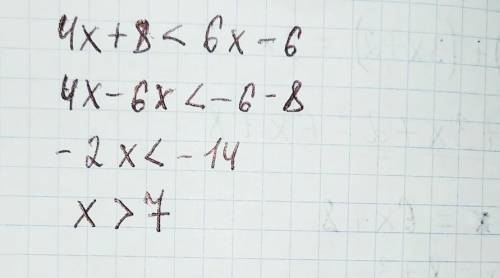 4x+8<6x-6
4x-6x<-6-8
-2x<-14
x>7